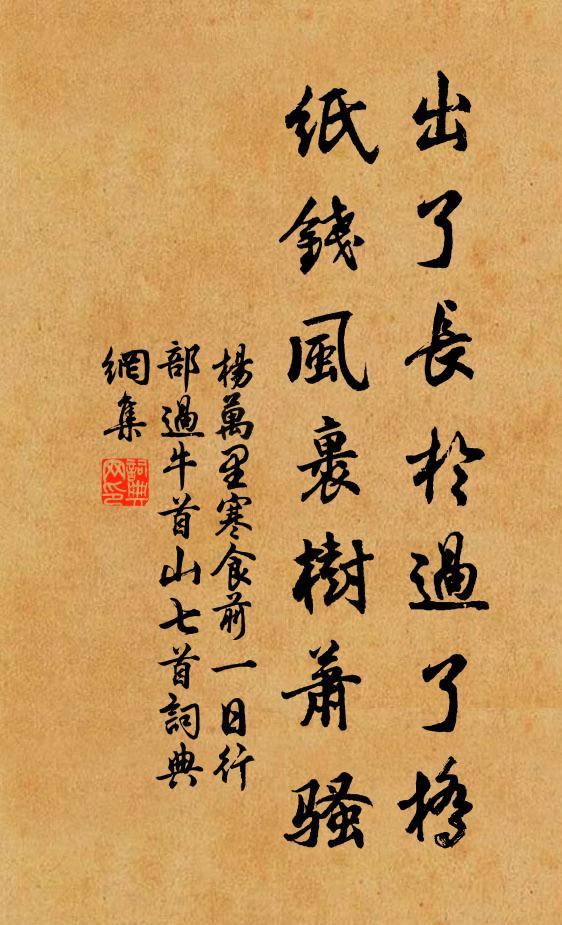 出了長於過了橋
紙錢風裏樹蕭騷
楊萬里寒食前一日行
部過牛首山七首詞典
網集
詞典
网印